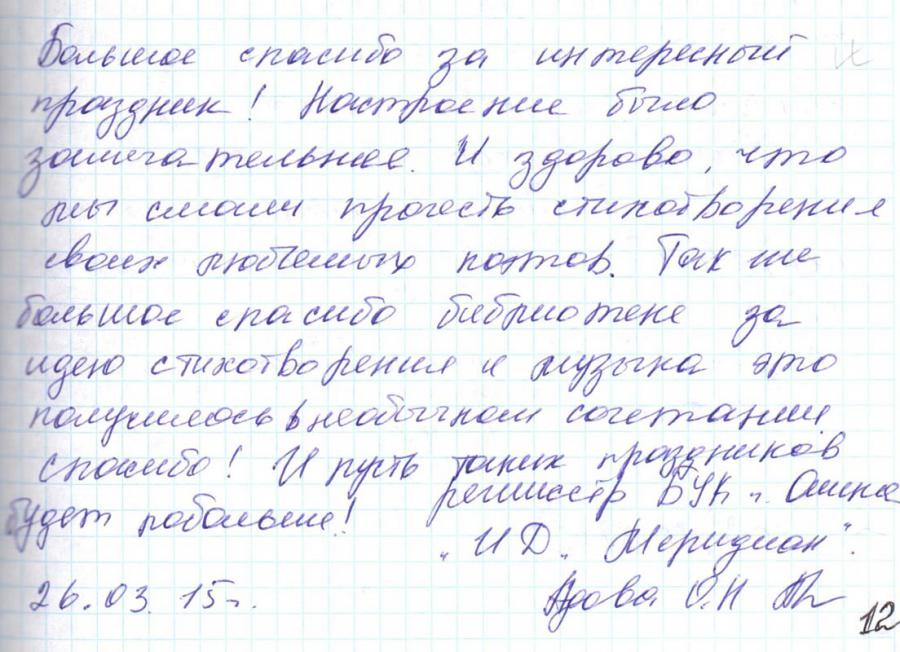 Большое спасибо за интересный
праздник! Настроение было
замечательнее. И здорово, что
мы смогли прочесть стихотворения
своих любимых поэтов. Так же
большое спасибо библиотеке за
идею стихотворения и музыка это
получилось в необычном сочетании
спасибо! И пусть таких праздников
будет побольше!
режиссёр БУК г. Омска
"ИД „Меридиан".
26.03.15г.
О.Н
12